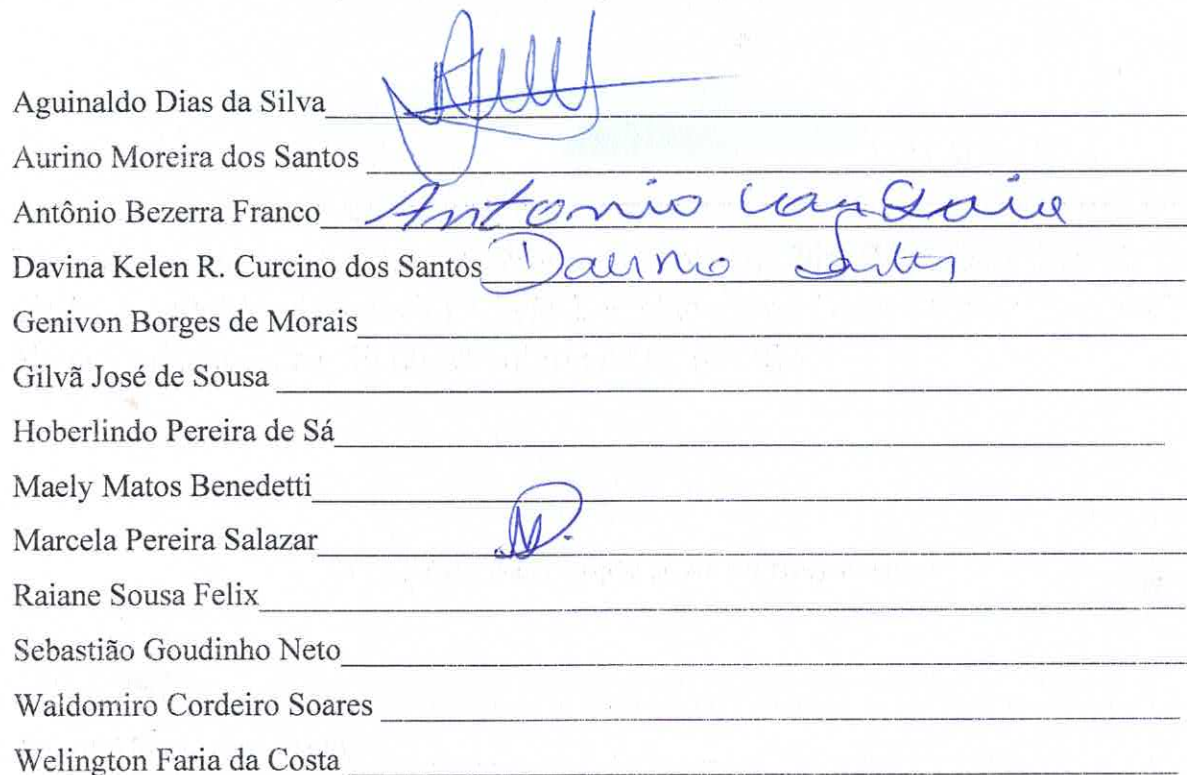 Aguinaldo Dias da Silva
Aurino Moreira dos Santos
Antônio Bezerra Franco Antonio
Davina Kelen R. Curcino dos Santos
Genivon Borges de Morais
Gilvã José de Sousa
Hoberlindo Pereira de Sá
Maely Matos Benedetti
Marcela Pereira Salazar
Raiane Sousa Felix
Sebastião Goudinho Neto
Waldomiro Cordeiro Soares
Welington Faria da Costa